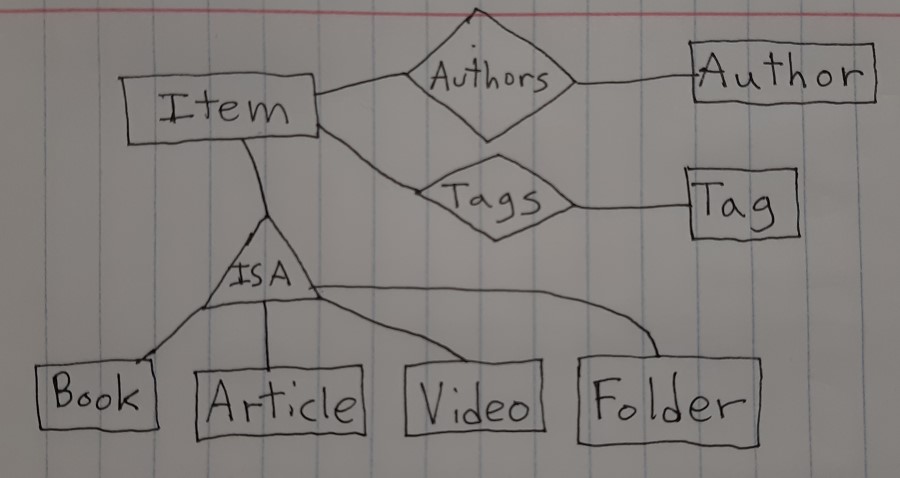 Item
Authors
Author
Tags
Tag
ISA
Book
Article
Video
Folder